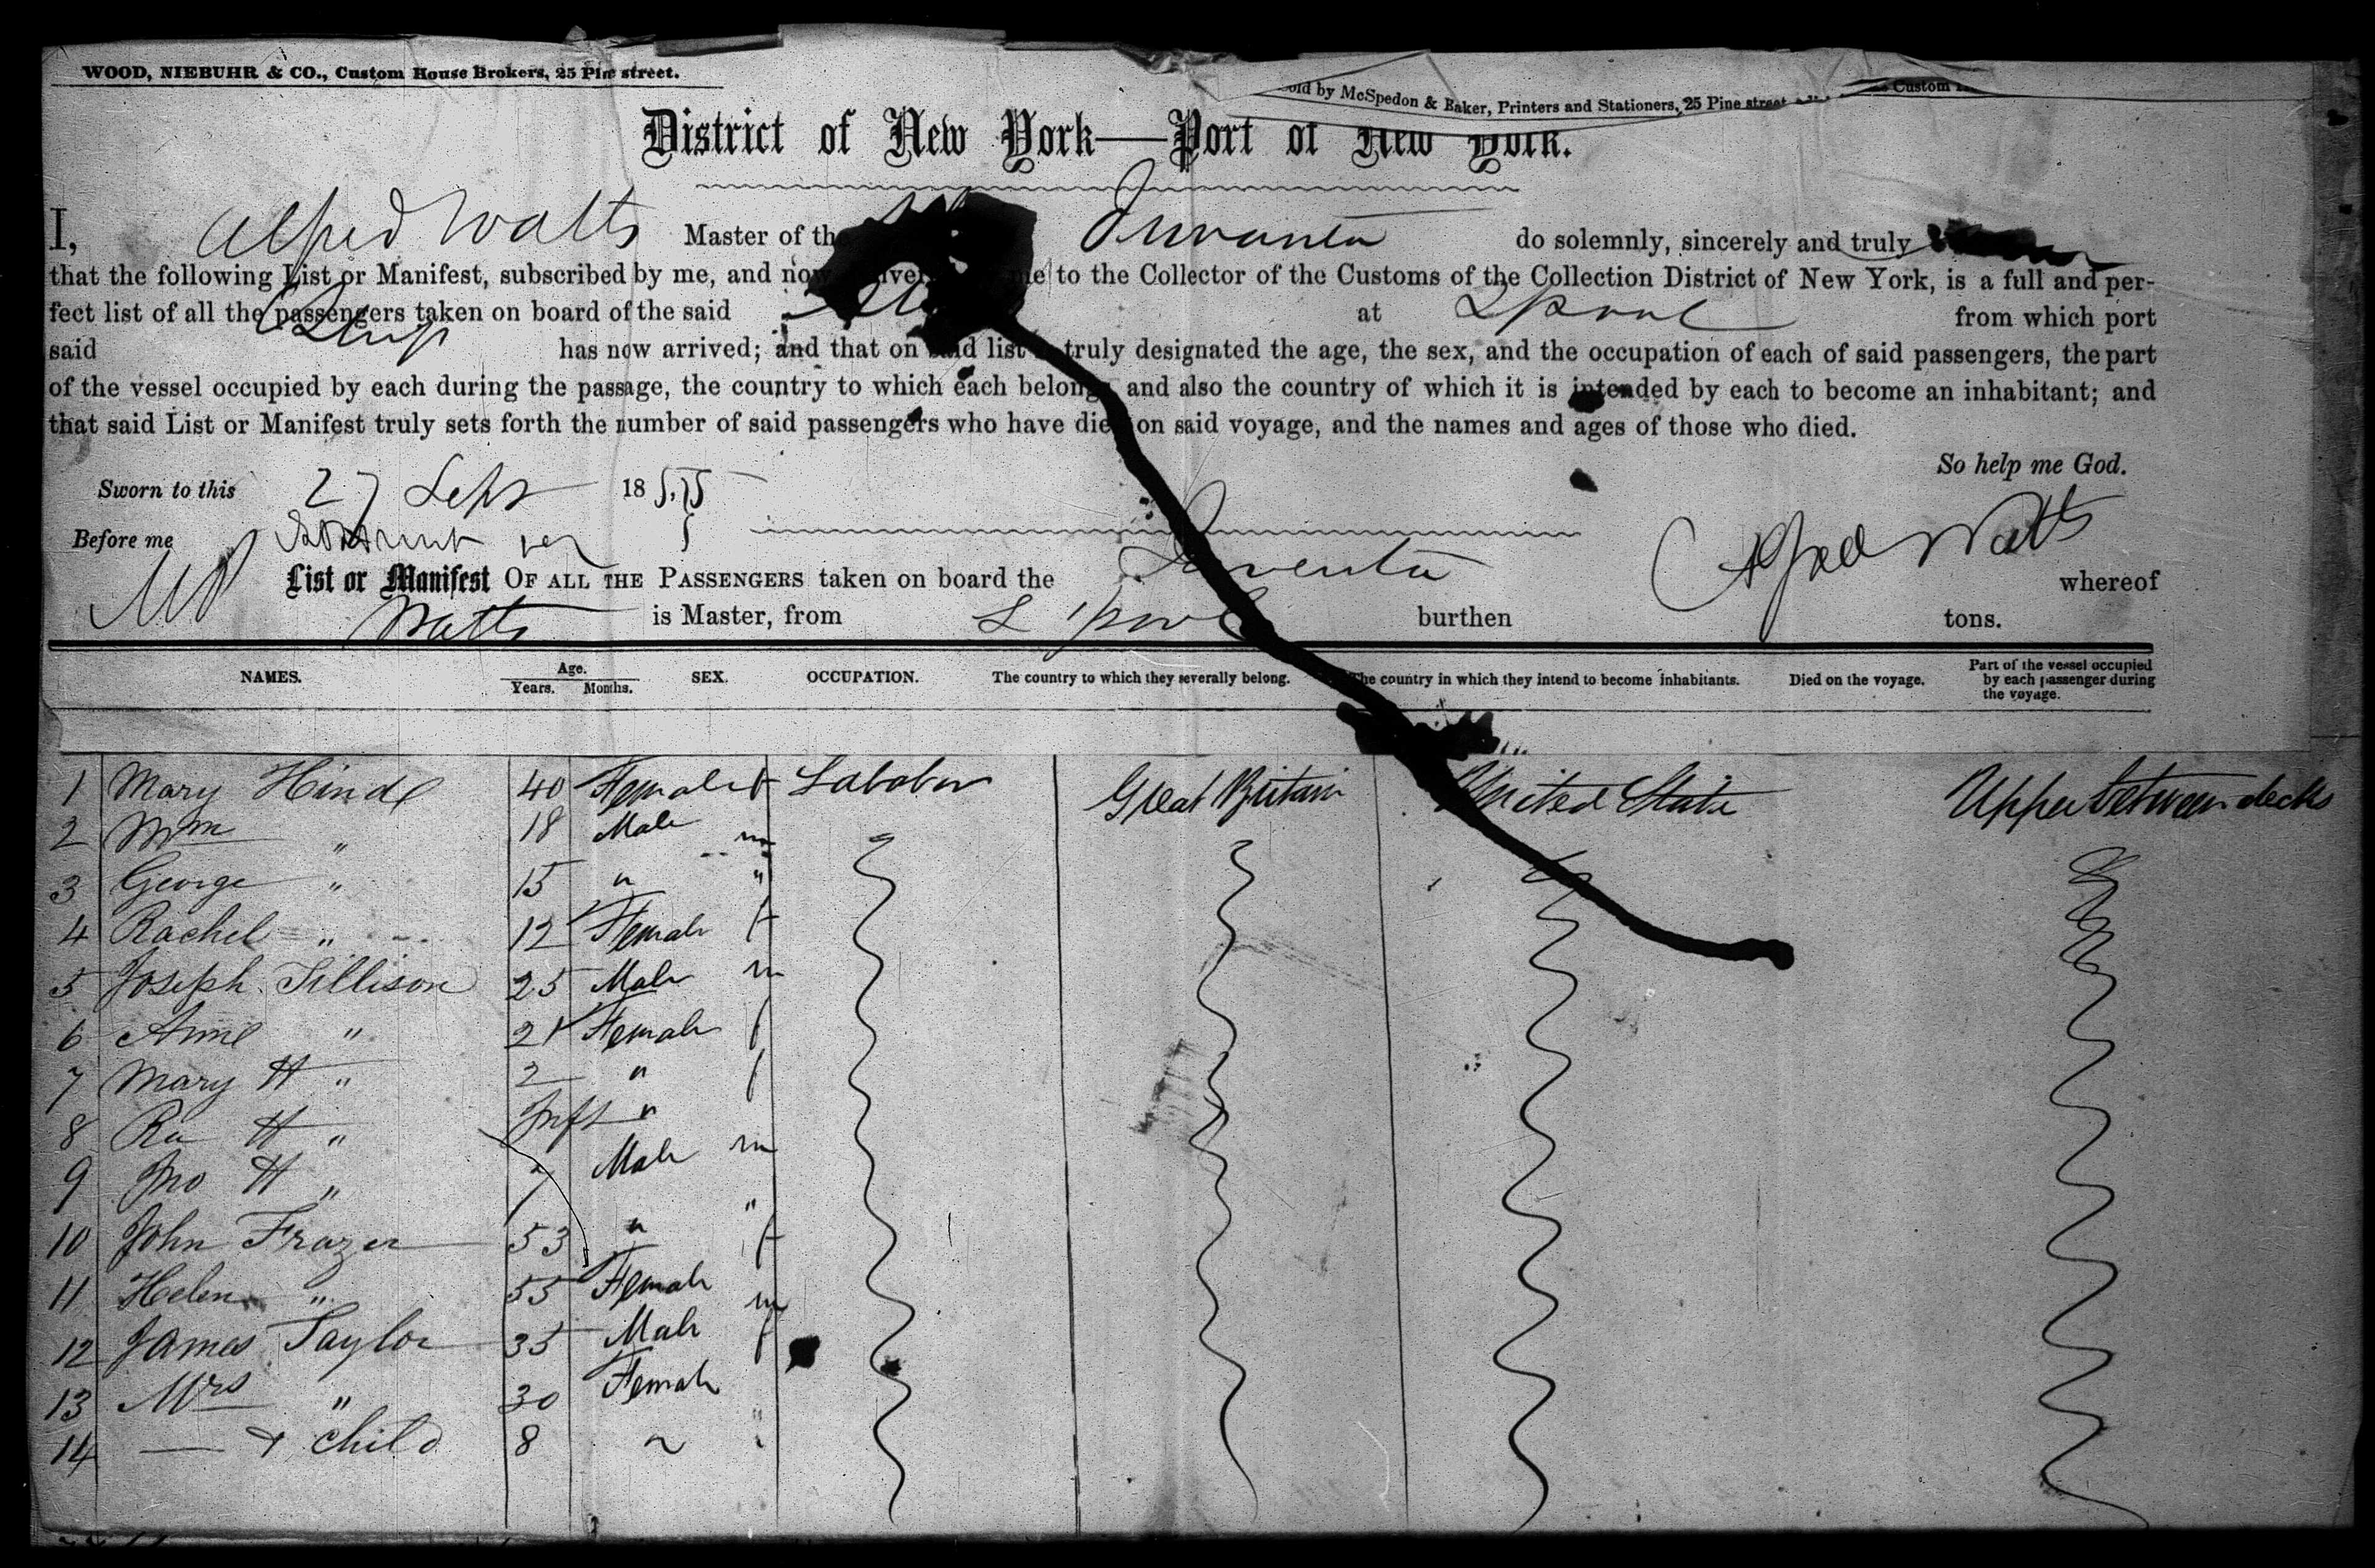 WOOD, NIEBUHR & CO., Custom House Brokers, 25 Pine street.
old by McSpedon & Baker, Printers and Stationers, 25 Pine street
Custom
District of New York—Port of New York.
I, Alfred Watts Master of the do solemnly, sincerely and truly
that the following List or Manifest, subscribed by me, and now to the Collector of the Customs of the Collection District of New York, is a full and per-
fect list of all the passengers taken on board of the said at Lpool from which port
said Ship has now arrived; and that on said list truly designated the age, the sex, and the occupation of each of said passengers, the part
of the vessel occupied by each during the passage, the country to which each belongs, and also the country of which it is intended by each to become an inhabitant; and
that said List or Manifest truly sets forth the number of said passengers who have died on said voyage, and the names and ages of those who died.
So help me God.
Sworn to this 27 Sept 1855
Before me Alfred Watts
List or Manifest OF ALL THE PASSENGERS taken on board the Juventa whereof
Watts is Master, from L'pool burthen tons.
NAMES. Age. Years. Months. SEX. OCCUPATION. The country to which they severally belong. The country in which they intend to become inhabitants. Died on the voyage. Part of the vessel occupied by each passenger during the voyage.
1 Mary Hinde 40 Female f Great Britain United State Upper between decks
2 Wm " 18 Male m
3 George " 15 " "
4 Rachel " 12 Female f
5 Joseph Tillison 25 Male m
6 Anne " 21 Female f
7 Mary H " 2 " f
8 H " Inft "
9 Jno H " Male m
10 John Frazer 53 " "
11 Helen " 55 Female f
12 James Taylor 35 Male m
13 Mrs " 30 Female f
14 — & Child 8 " "